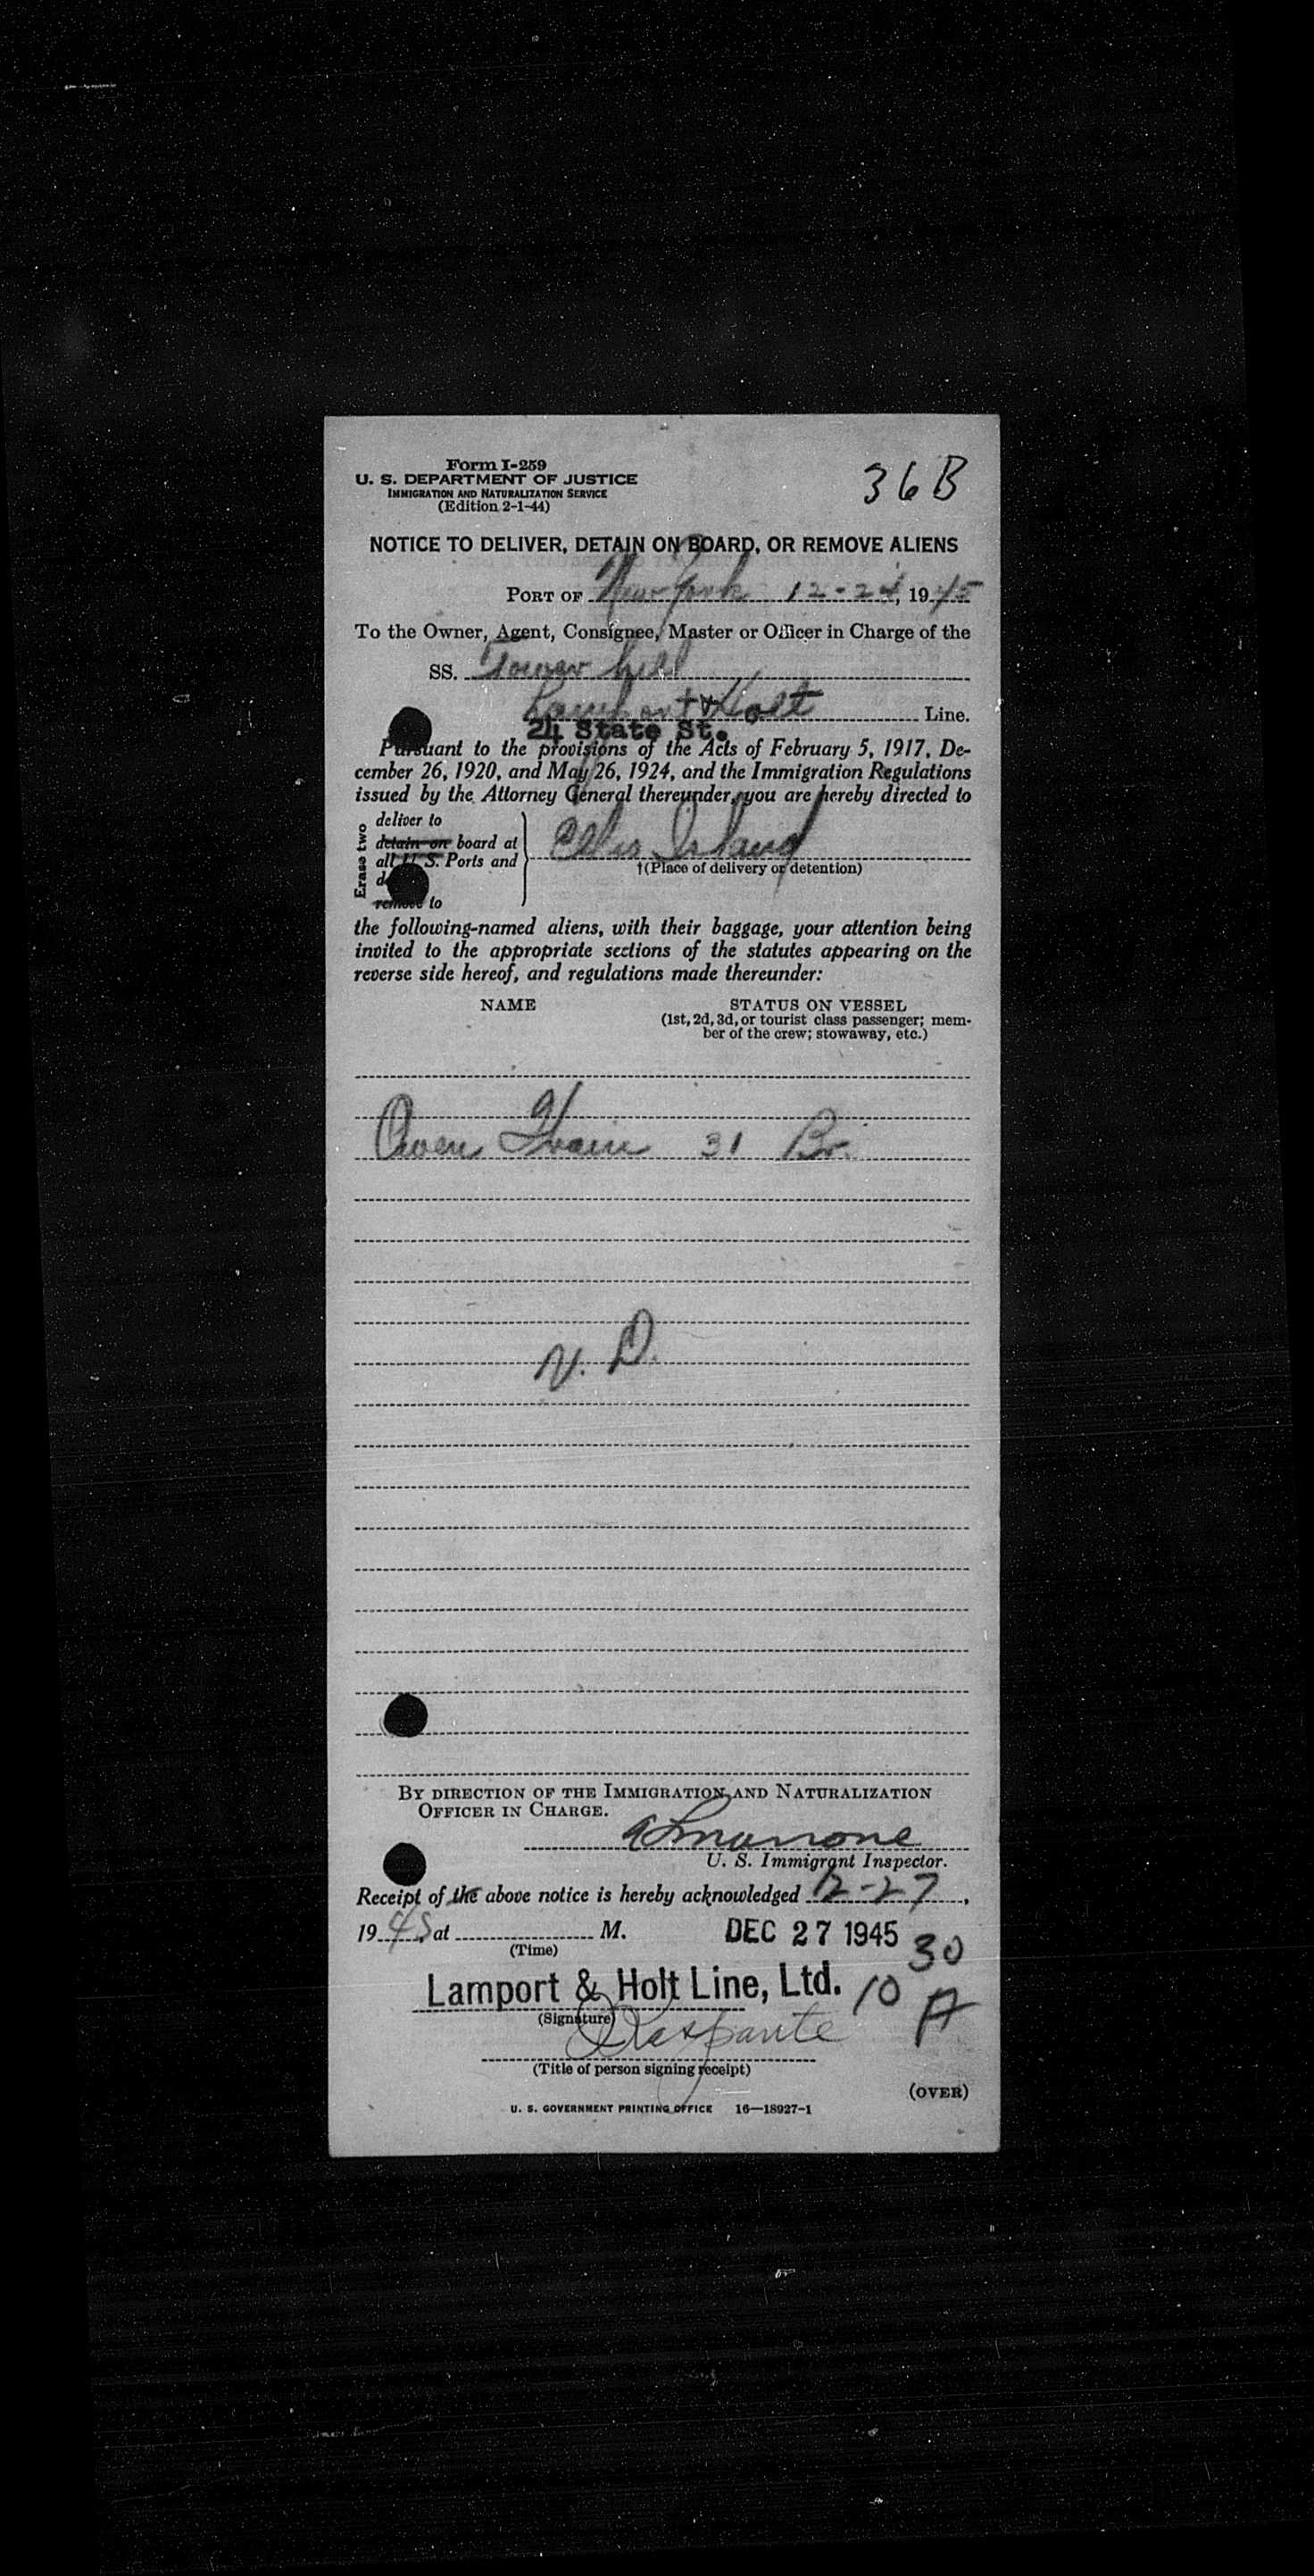 Form I-259
36B
U. S. DEPARTMENT OF JUSTICE
IMMIGRATION AND NATURALIZATION SERVICE
(Edition 2-1-44)
NOTICE TO DELIVER, DETAIN ON BOARD, OR REMOVE ALIENS
PORT OF New York 12-24, 1945
To the Owner, Agent, Consignee, Master or Officer in Charge of the
SS. Tower hill
Lamport & Holt Line.
24 State St.
Pursuant to the provisions of the Acts of February 5, 1917, De-
cember 26, 1920, and May 26, 1924, and the Immigration Regulations
issued by the Attorney General thereunder, you are hereby directed to
Erase two
deliver to
detain on board at
all U. S. Ports and
remove to
Ellis Island
†(Place of delivery or detention)
the following-named aliens, with their baggage, your attention being
invited to the appropriate sections of the statutes appearing on the
reverse side hereof, and regulations made thereunder:
NAME STATUS ON VESSEL
(1st, 2d, 3d, or tourist class passenger; mem-
ber of the crew; stowaway, etc.)
Owen 31 Br.
V. D.
BY DIRECTION OF THE IMMIGRATION AND NATURALIZATION
OFFICER IN CHARGE.
U. S. Immigrant Inspector.
Receipt of the above notice is hereby acknowledged 12-27,
1945, at M. DEC 27 1945
(Time)
10 30 A
Lamport & Holt Line, Ltd.
(Signature)
(Title of person signing receipt)
(OVER)
U. S. GOVERNMENT PRINTING OFFICE 16—18927-1